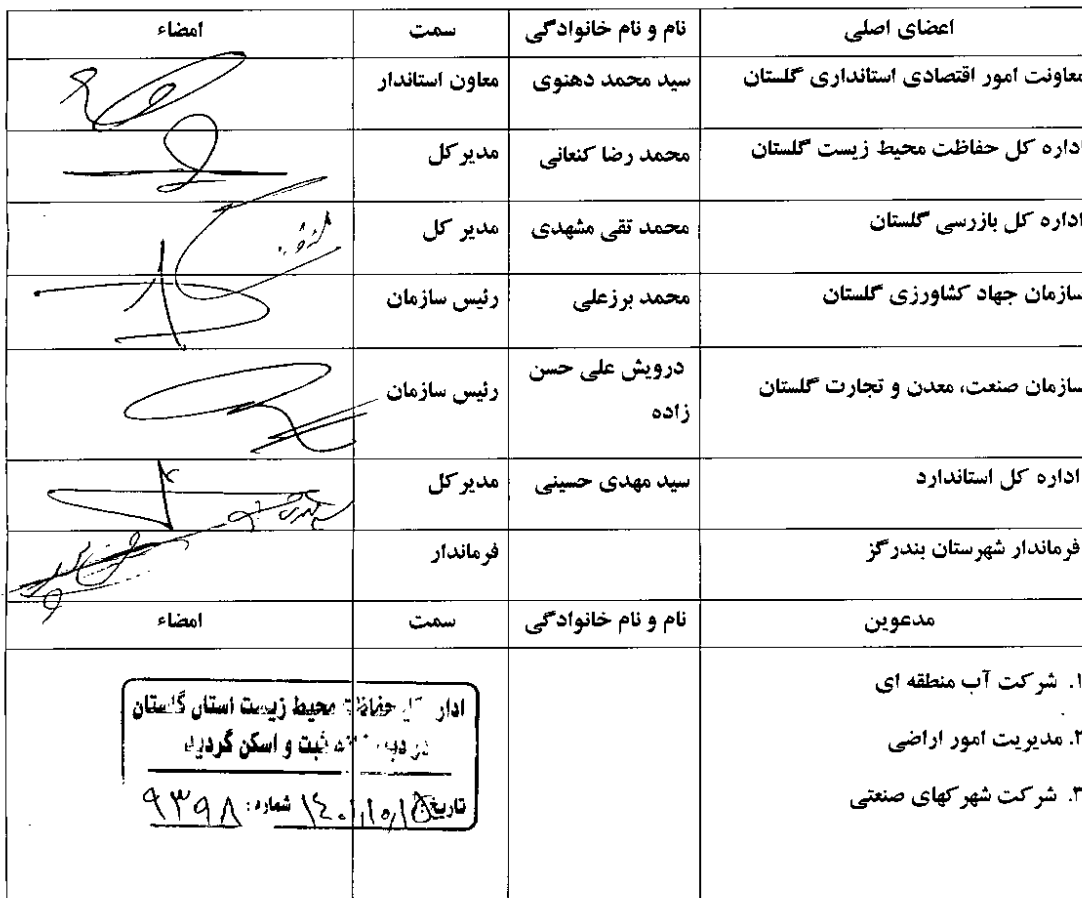 اعضای اصلی نام و نام خانوادگی سمت امضاء
معاونت امور اقتصادی استانداری گلستان سید محمد دهنوی معاون استاندار
اداره کل حفاظت محیط زیست گلستان محمد رضا کنعانی مدیر کل
اداره کل بازرسی گلستان محمد تقی مشهدی مدیر کل
سازمان جهاد کشاورزی گلستان محمد برزعلی رئیس سازمان
سازمان صنعت، معدن و تجارت گلستان درویش علی حسن رئیس سازمان
زاده
اداره کل استاندارد سید مهدی حسینی مدیر کل
فرماندار شهرستان بندرگز فرماندار
مدعوین نام و نام خانوادگی سمت امضاء
۱. شرکت آب منطقه ای
۲. مدیریت امور اراضی
۳. شرکت شهرکهای صنعتی
حفاظت محیط زیست استان گلستان
ثبت و اسکن گردید
تاریخ: شماره: ۹۳۹۸